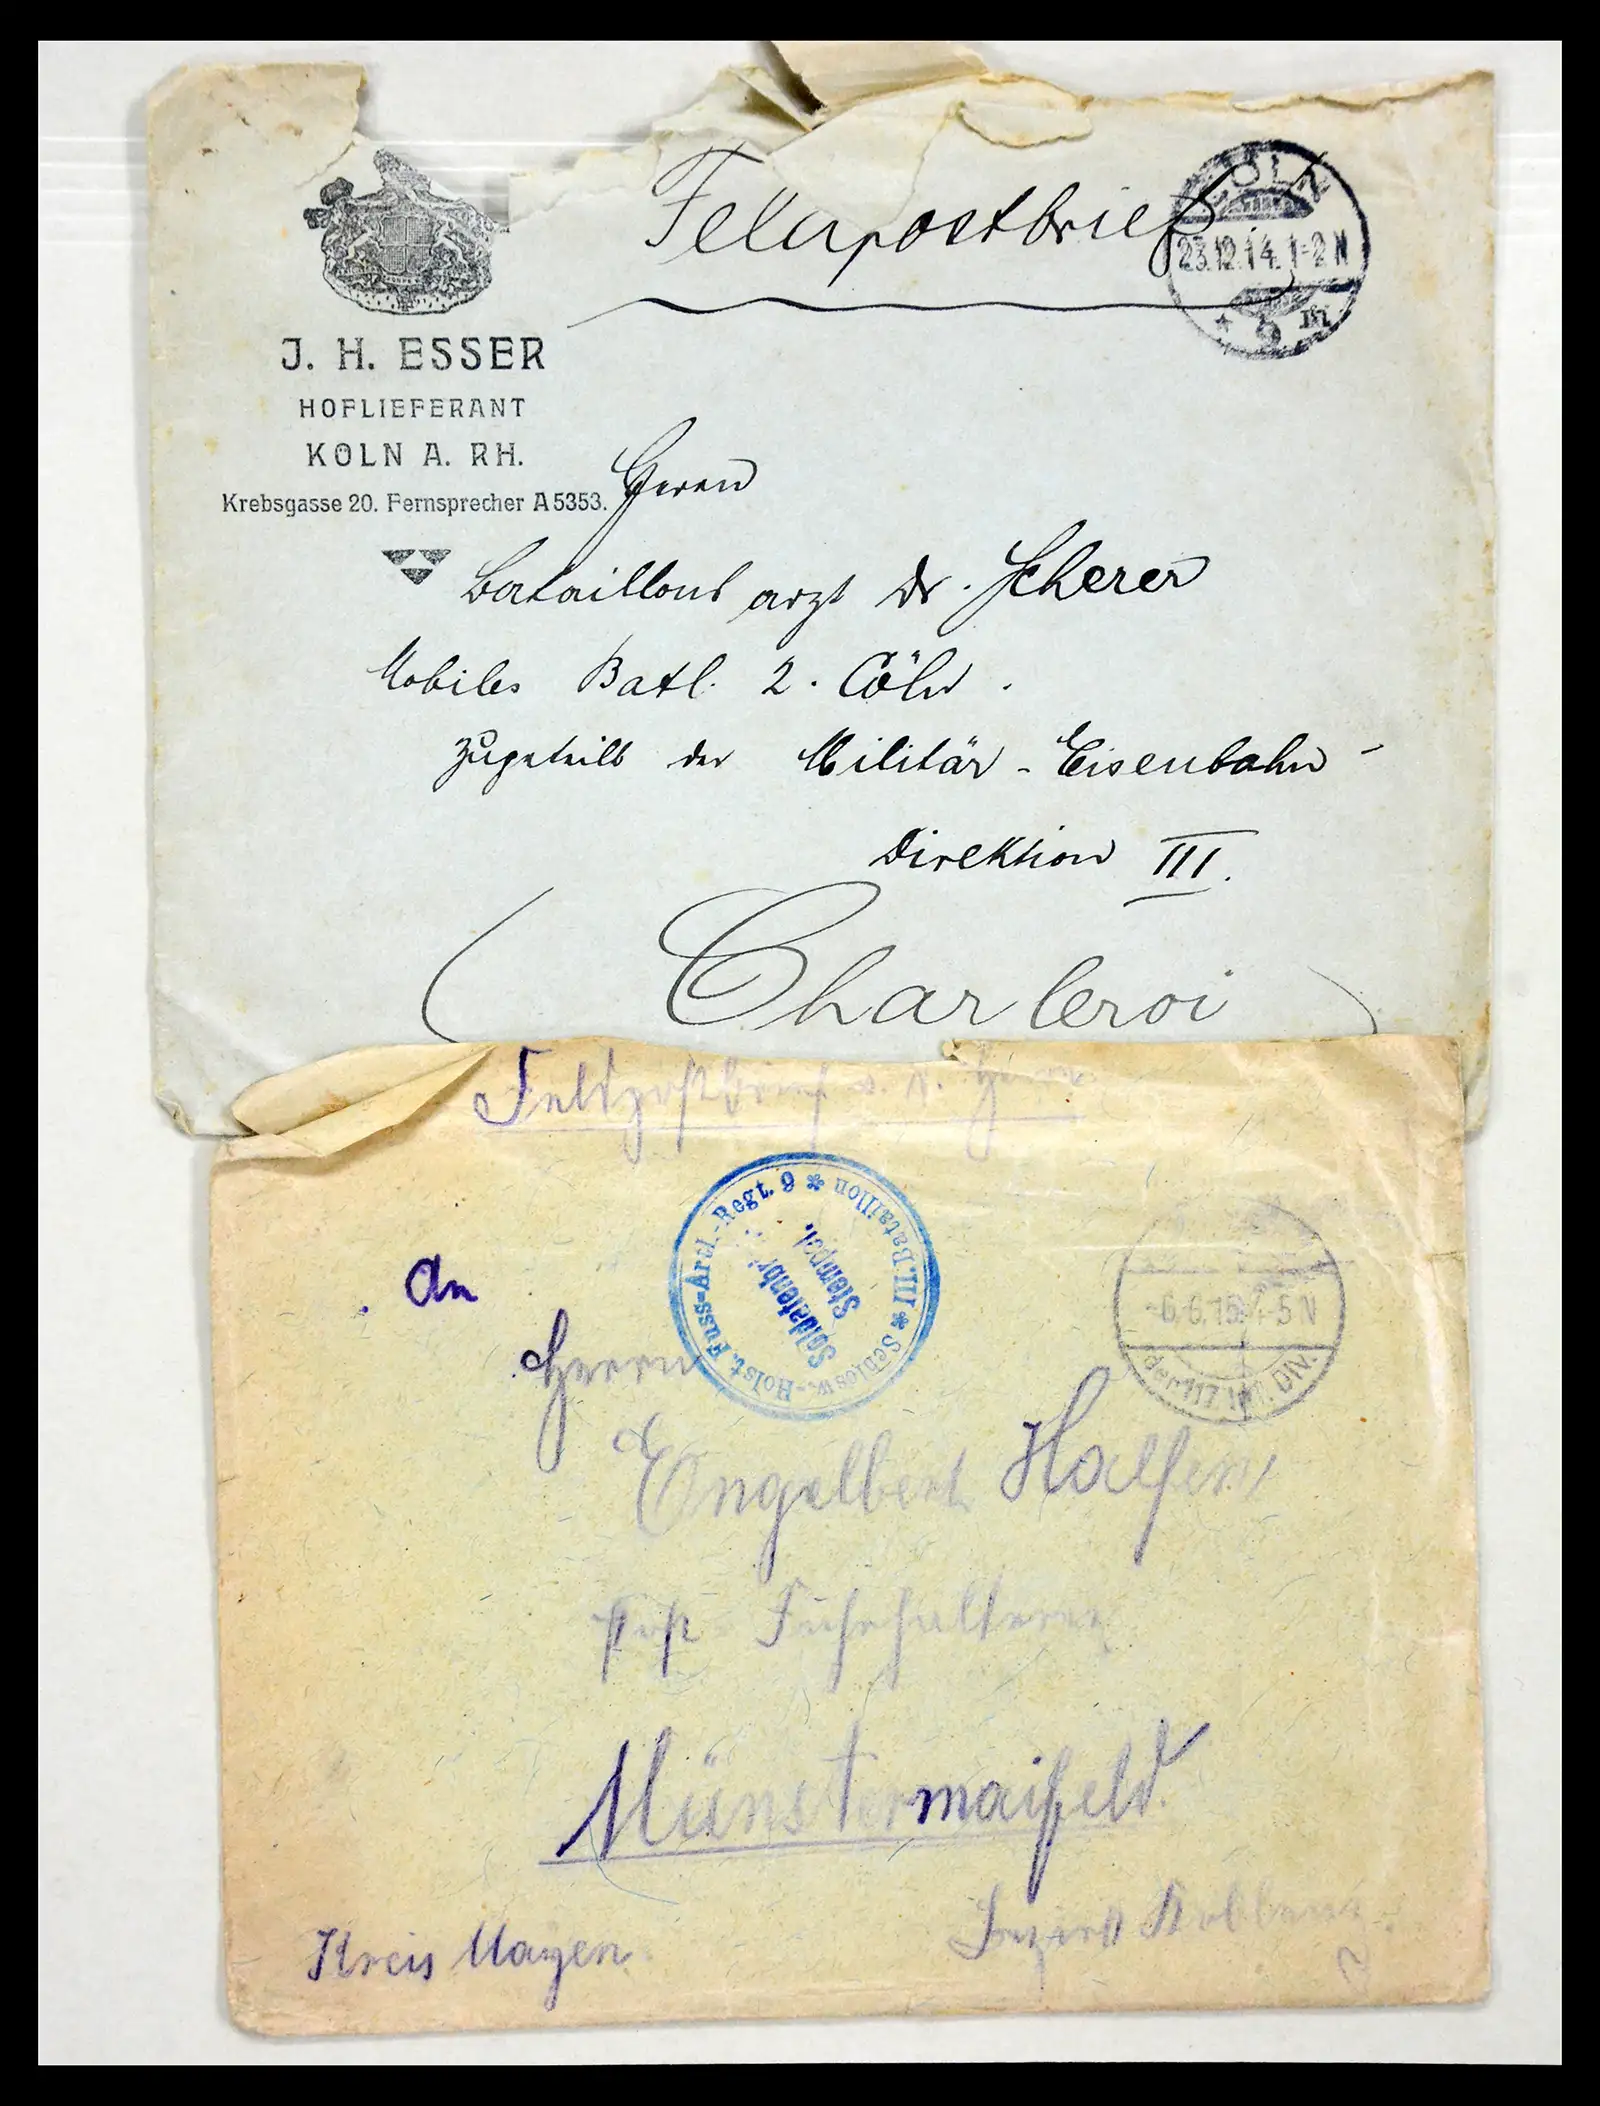 Feldpostbrief
CÖLN
23.12.14.1-2N
* 9 m
J. H. ESSER
HOFLIEFERANT
KÖLN A. RH.
Krebsgasse 20. Fernsprecher A 5353.
Herrn
Bataillons arzt Dr. Scherer
Mobiles Batl. 2. Cöln.
Zugeteilt der Militär-Eisenbahn-
Direktion III.
(Charleroi)
Feldpostbrief
Schlesw.-Holst. Fuss-Artl.-Regt. 9 * III. Bataillon *
Soldatenbr
Stempel.
-6.6.15. 4-5N
der 117. INF. DIV.
An
Herrn
Engelbert Halfen
Fuhrhalterei
Münstermaifeld.
Kreis Mayen.
Bezirk Koblenz.